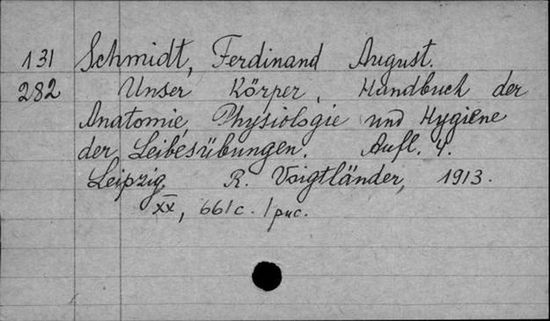 131 Schmidt, Ferdinand August.
282 Unser Körper, Handbuch der
Anatomie, Physiologie und Hygiene
der Leibesübungen. Aufl. 4.
Leipzig, R. Voigtländer, 1913.
XX, 661 c. /рис.